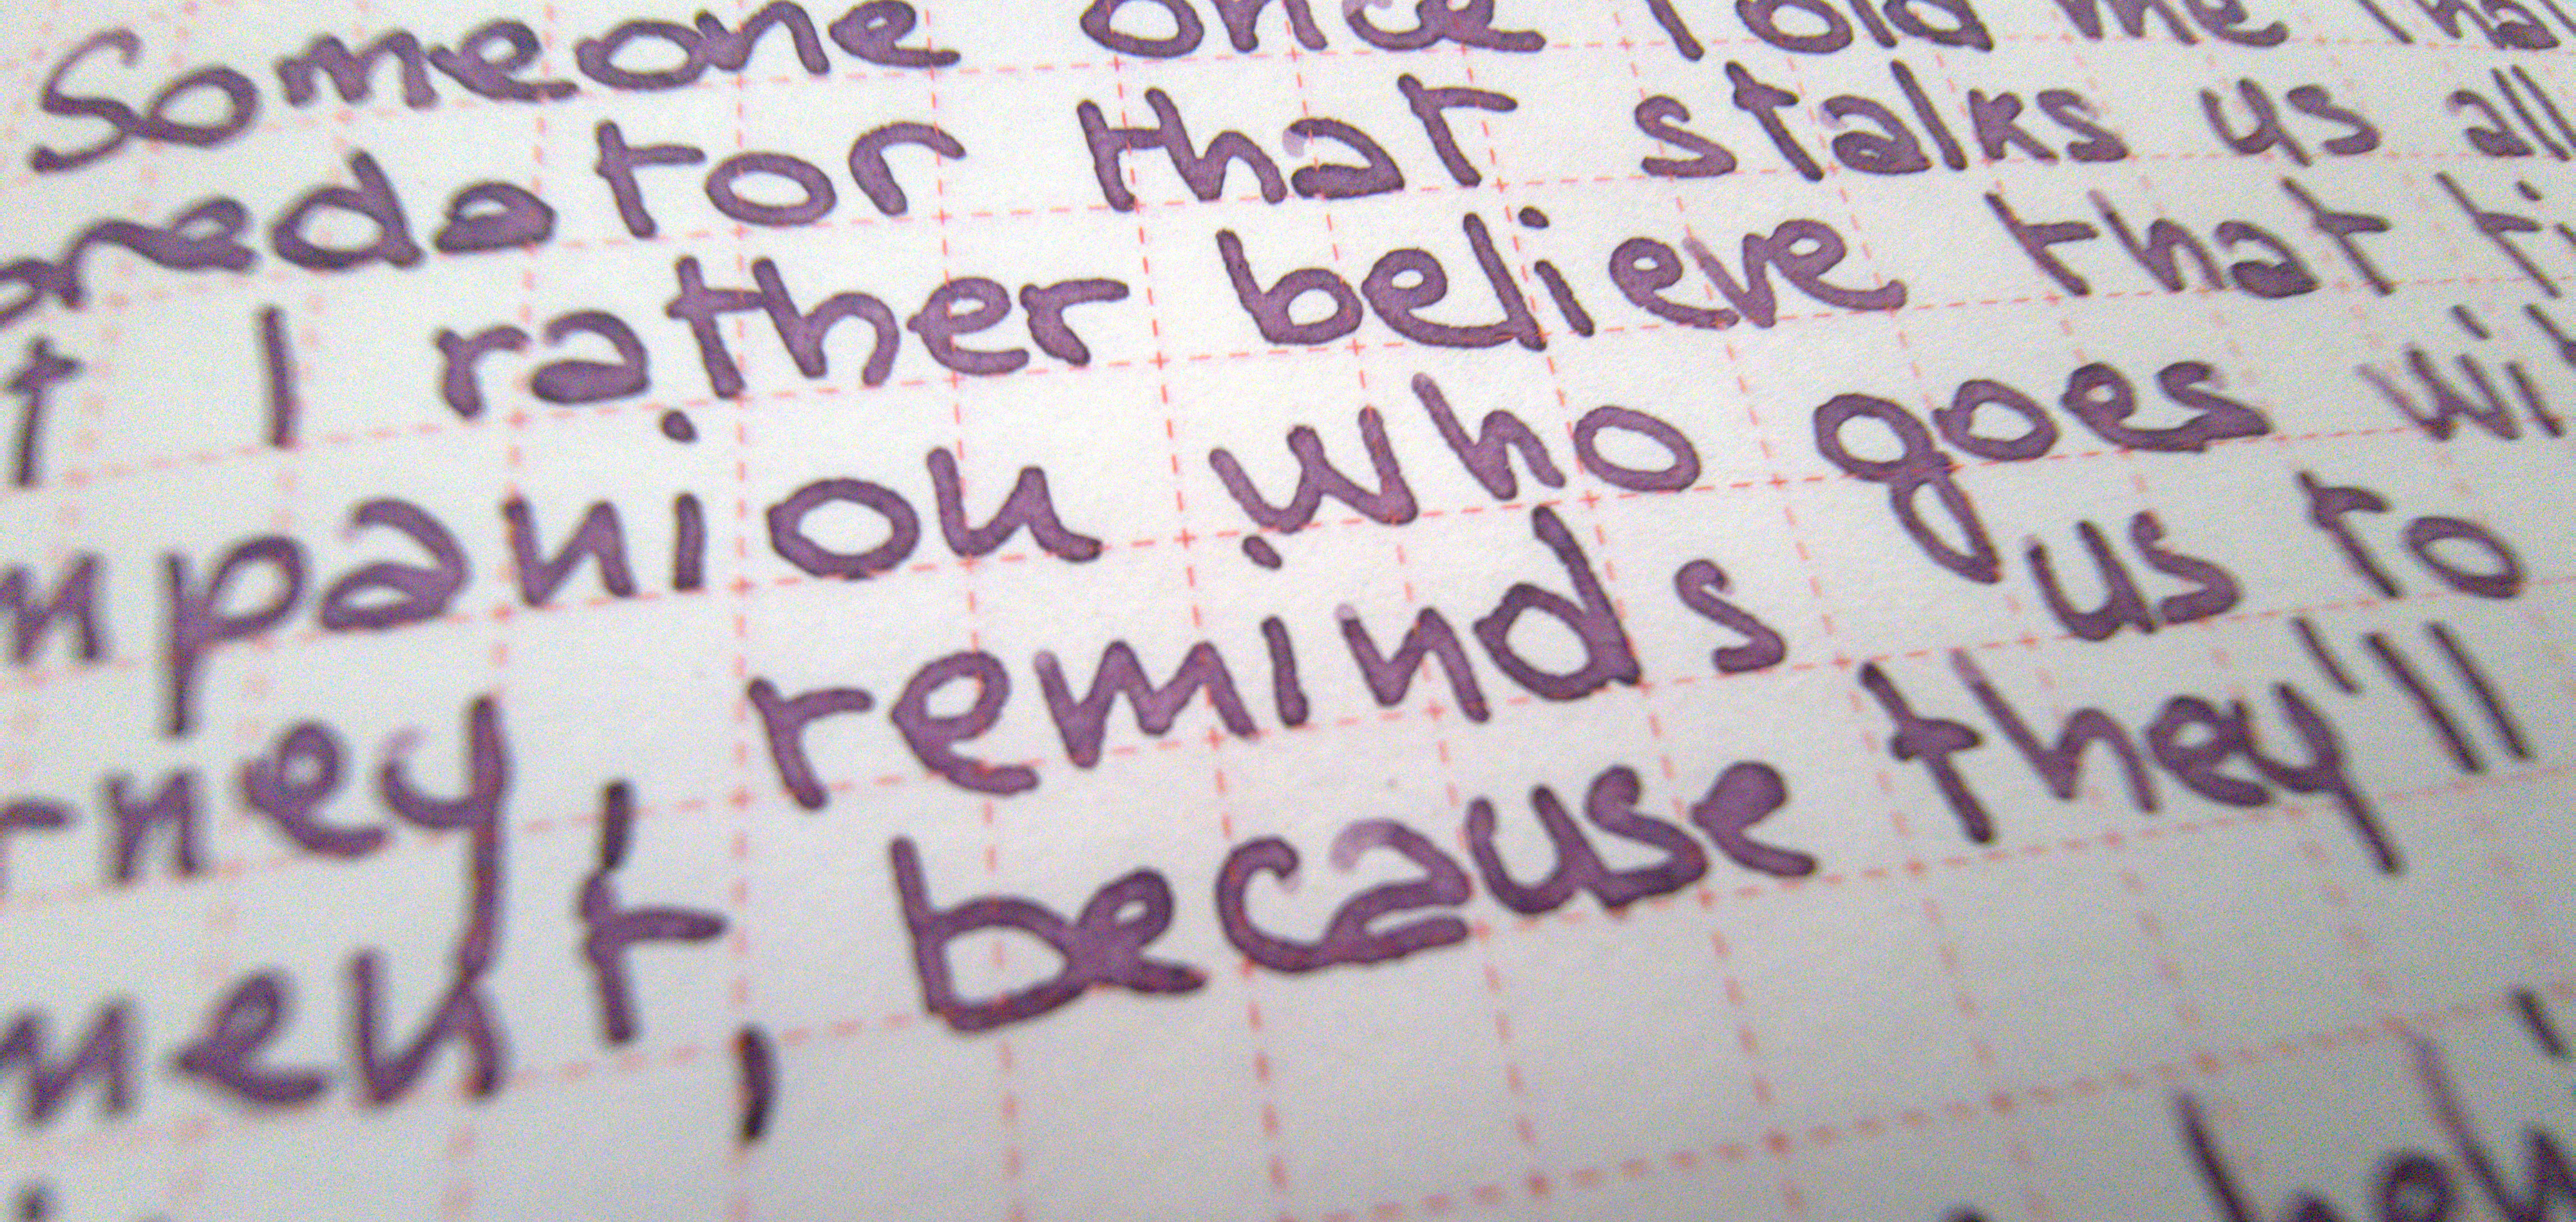 Someone once told me that
predator that stalks us all
t I rather believe that ti
mpanion who goes wit
rney reminds us to
ment, because they'll
behi